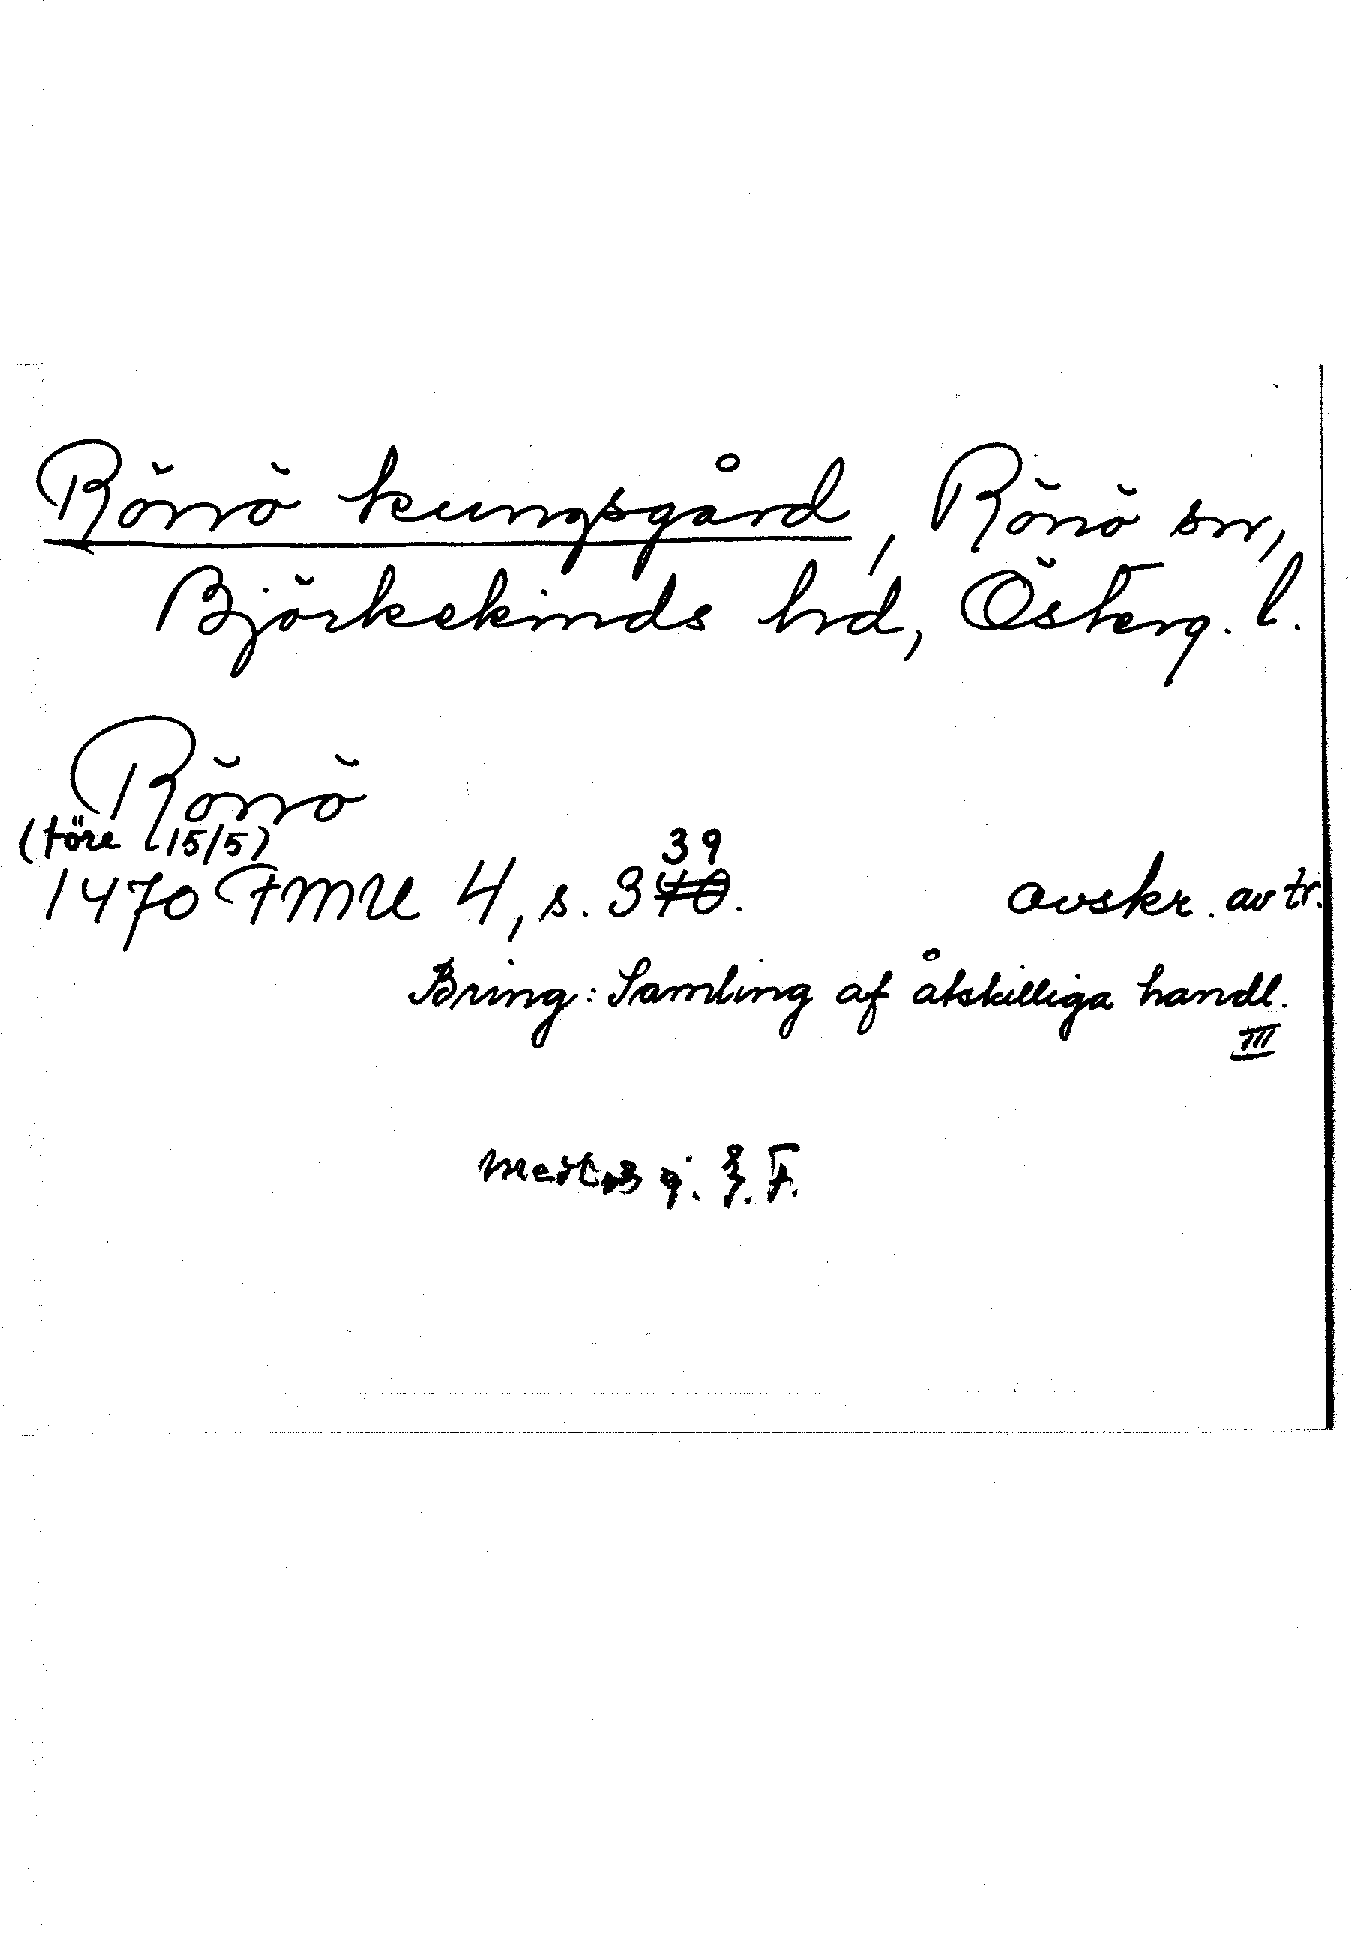 Rönö kungsgård, Rönö sn,
Björkekinds hd, Österg. l.
Rönö
(före 15/5)
1470 FMU 4, s. 339. avskr. av tr.
Bring: Samling af åtskilliga handl.
III